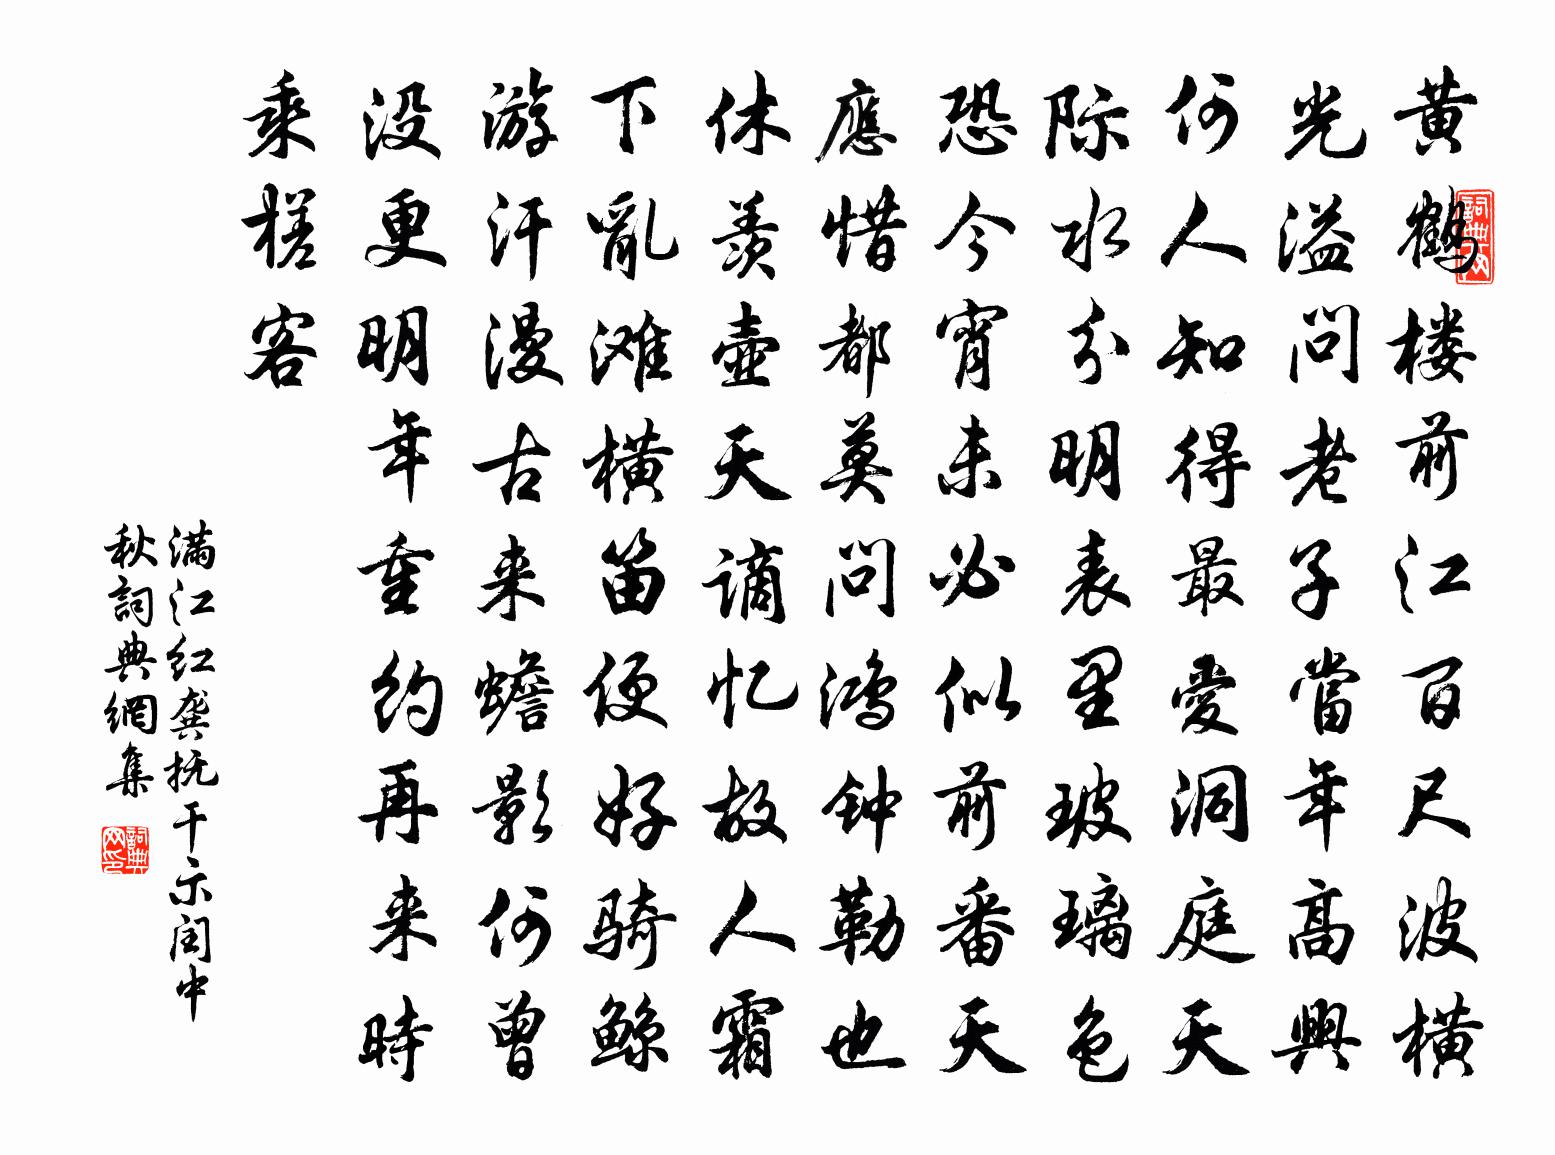 黄鹤楼前江百尺波横
光溢问老子當年高興
何人知得最愛洞庭天
际水分明表里玻璃色
恐今宵未必似前番天
應惜都莫问鸿钟勒也
休羨壶天谪忆故人霜
下亂滩横笛便好骑鲸
游汗漫古来蟾影何曾
没更明年重约再来時
乘槎客
满江红龚抚干示闰中
秋詞典網集
詞典网
詞典网印